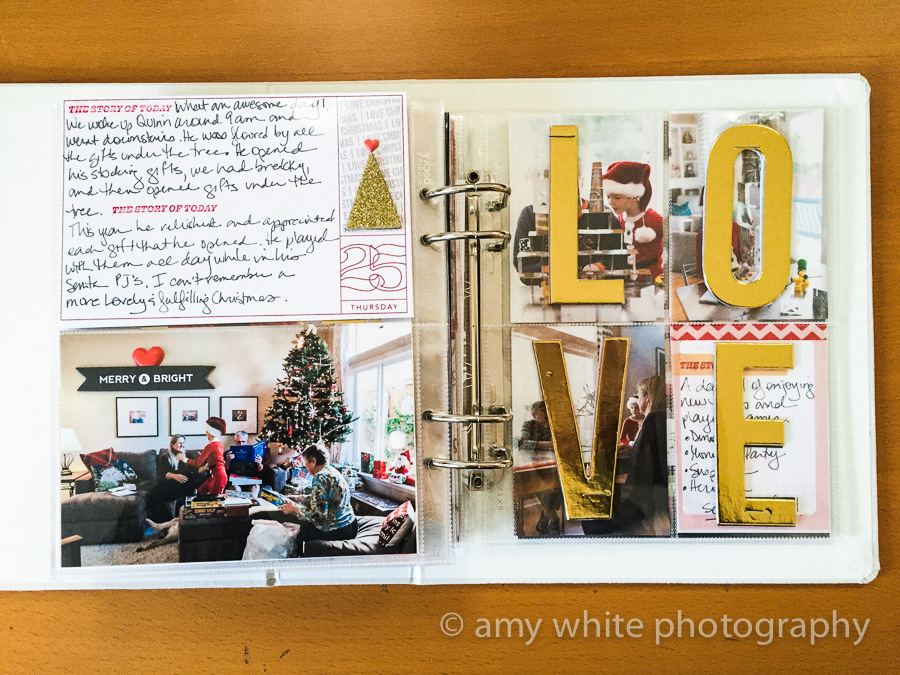 THE STORY OF TODAY What an awesome day!
We woke up Quinn around 9am and
went downstairs. He was floored by all
the gifts under the tree. He opened
his stocking gifts, we had brekky,
and then opened gifts under the
tree. THE STORY OF TODAY
This year he relished and appreciated
each gift that he opened. He played
with them all day while in his
Santa PJ's. I can't remember a
more lovely & fulfilling Christmas.
I LOVE CHRISTMAS
25
THURSDAY
MERRY & BRIGHT
L O
V E
THE STO
A da of enjoying
new and
play games.
Party
© amy white photography